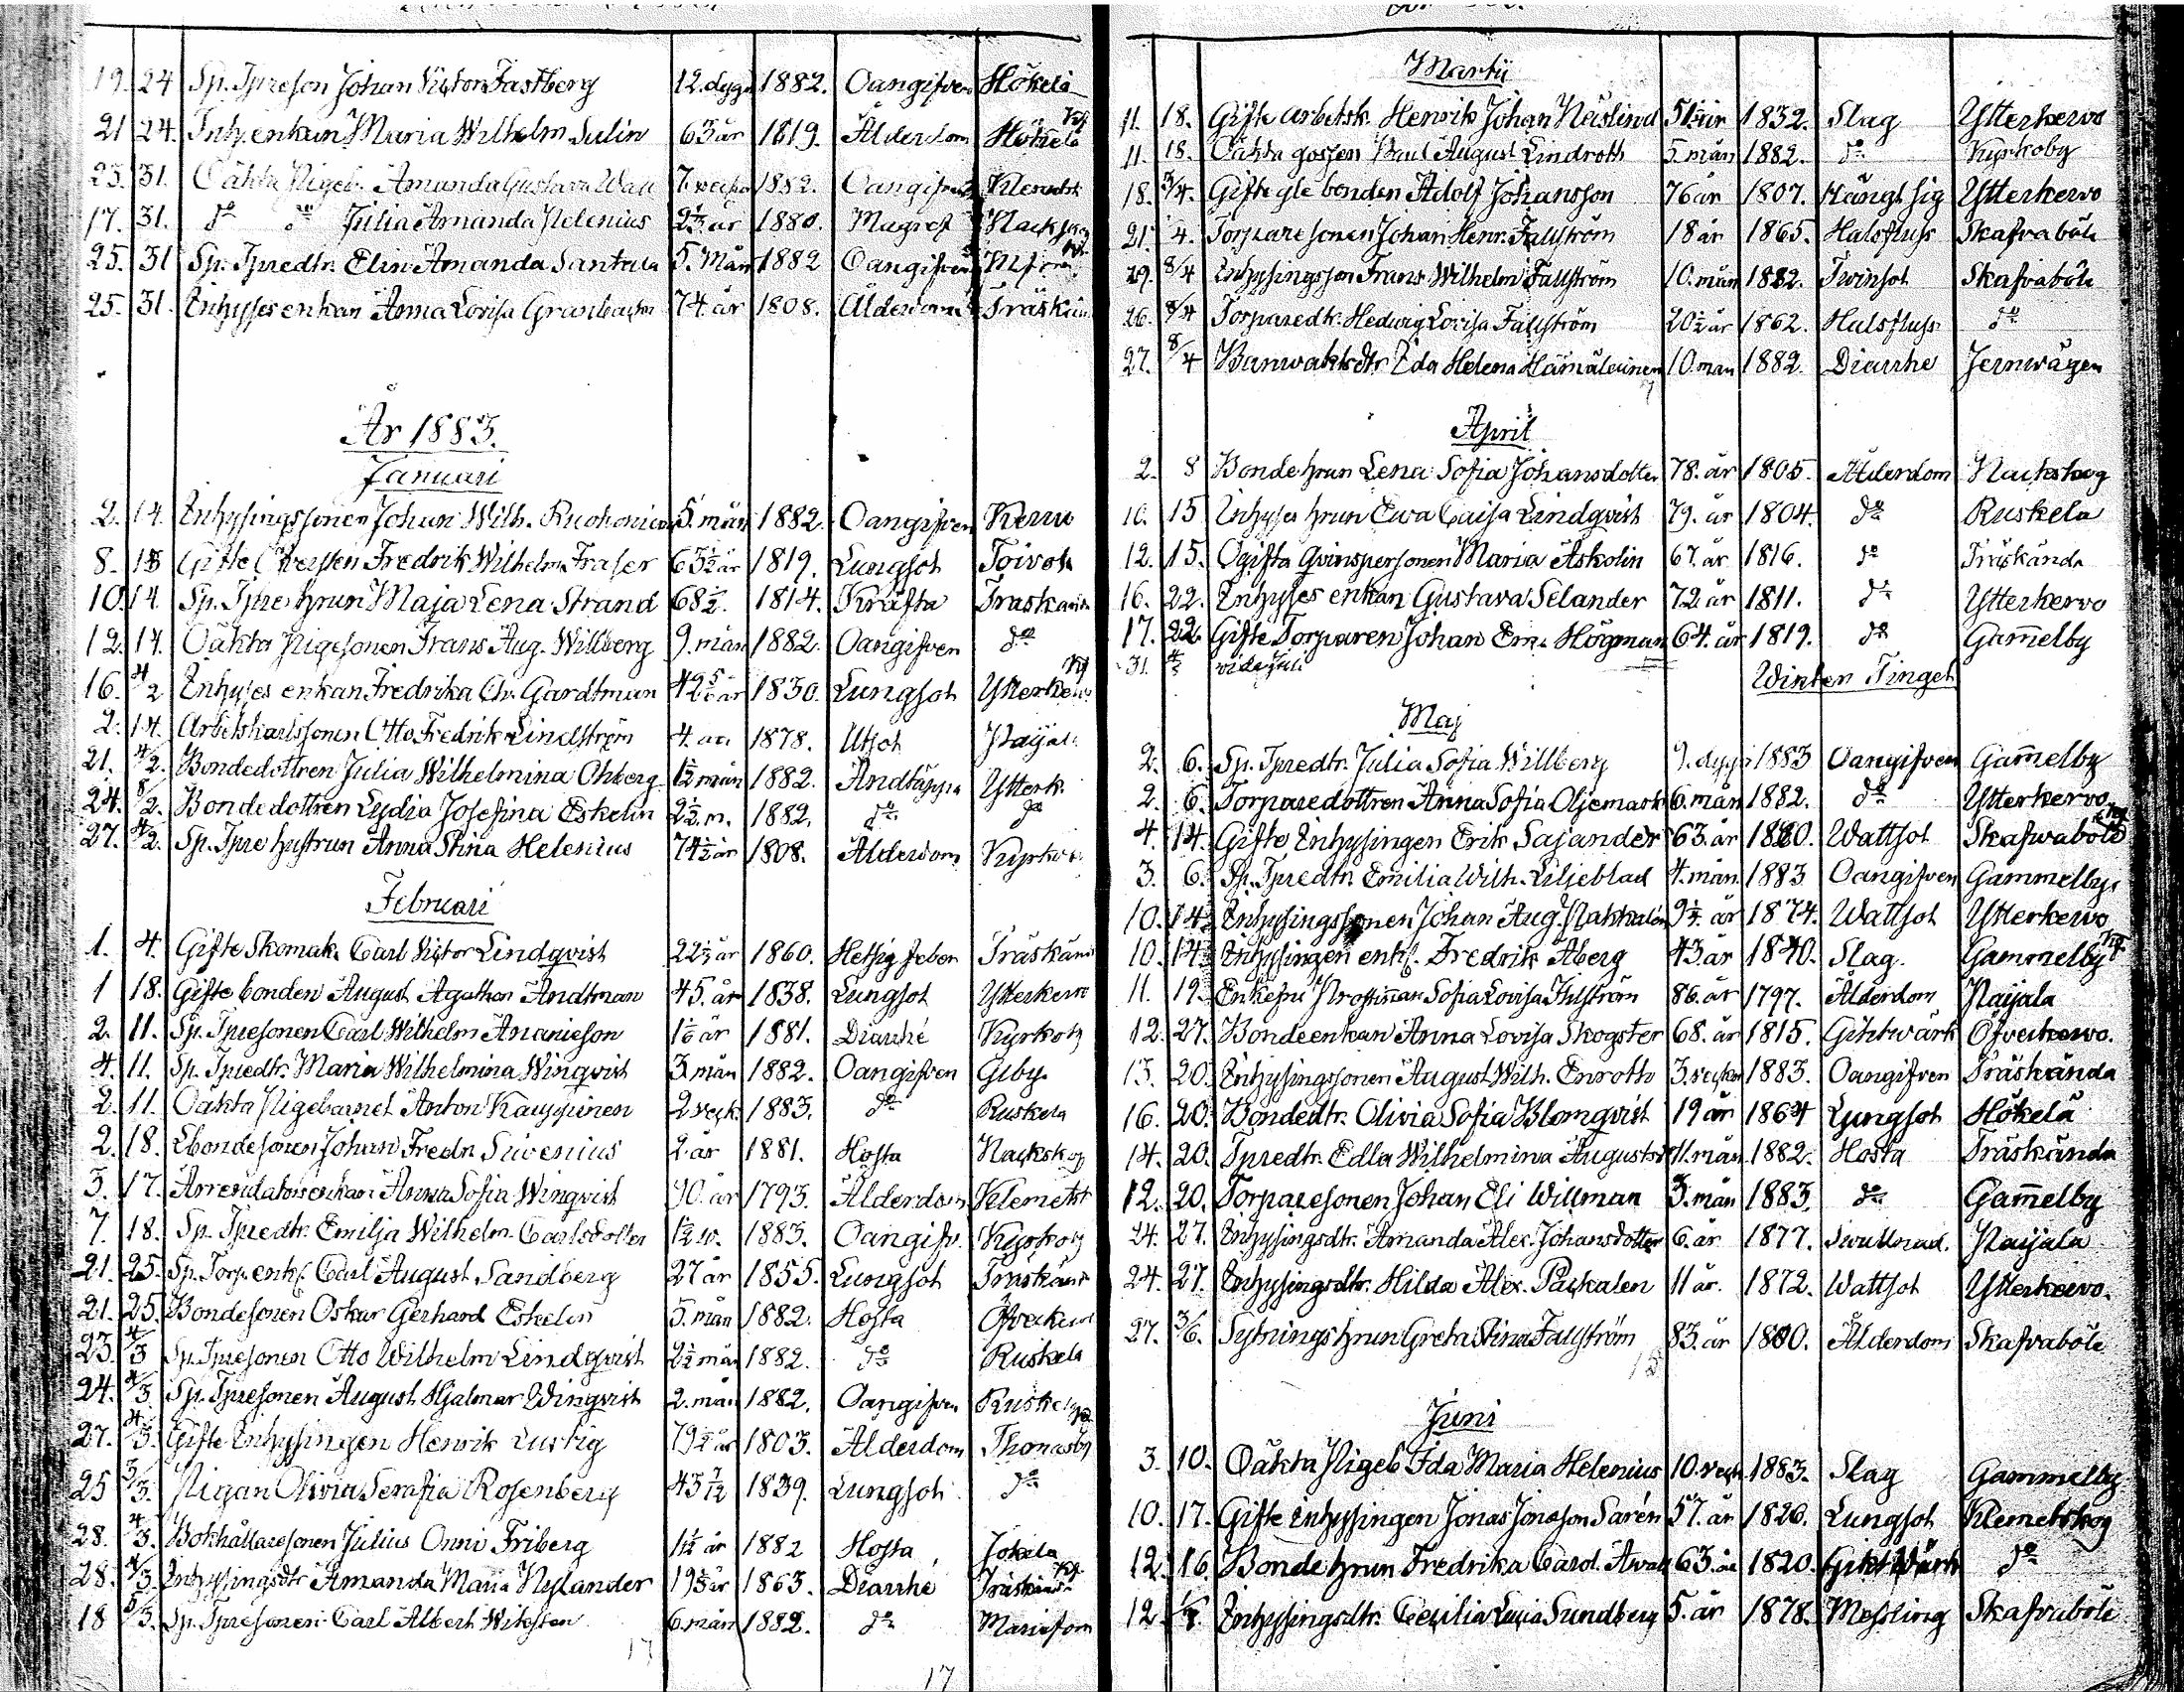 19. 24 Sp. Tpreson Johan Victor Fastberg 12. dygn 1882. Oangifven Hökelä
21 24. Inh. enkan Maria Wilhelm. Sulin 63 år 1819. Ålderdom Hökelä
23. 31. Oäkta Pigeb. Amanda Gustava Wall 7. veckor 1882. Oangifven Klemetsk
17. 31. do do Julia Amanda Helenius 2 1/3 år 1880. Magref Nackskog
25. 31 Sp. Tpredtr. Elin Amanda Santala 5. mån 1882 Oangifven
25. 31. Inhyses enkan Anna Lovisa Granbacka 74 år 1808. Ålderdom Träskända
År 1883.
Januari
2. 14. Inhysingssonen Johan Wilh. Ruohonien 5. mån 1882. Oangifven Kervo
8. 18 Gifte Fredrik Wilhelm Fraser 63 1/2 år 1819. Lungsot Toivola
10. 14. Sp. Tpre hrun Maja Lena Strand 68 1/2. 1814. Kräfta Träskända
12. 14. Oäkta Pigesonen Frans Aug. Willberg 9. mån 1882. Oangifven do
16. 4/2 Inhyses enkan Fredrika Ch. Gardtman 1830. Lungsot Ytterkervo
2. 14. Arbetskarlssonen Otto Fredrik Lindström 4. år 1878. Utsot Paijala
21. 4/2. Bondedottren Julia Wilhelmina Ohberg 1 1/2 mån 1882. Andtäppa Ytterk.
24. 8/2. Bondedottren Lydia Josefina Eskelin 2 1/2. m. 1882. do do
27. 4/2. Sp. Tpre hustrun Anna Stina Helenius 74 1/2 år 1808. Ålderdom Kyrkoby
Februari
1. 4. Gifte Skomak. Carl Victor Lindqvist 22 1/3 år 1860. Hetsig feber Träskända
1 18. Gifte bonden August Agathon Andtman 45. år 1838. Lungsot Ytterkervo
2. 11. Sp. Tpresonen Carl Wilhelm Ananieson 1 1/6 år 1881. Diarrhé Kyrkoby
4. 11. Sp. Tpredtr. Maria Wilhelmina Winqvist 3 mån 1882. Oangifven Gby.
2. 11. Oäkta Pigebarnet Anton Kauppinen 2 veck. 1883. do Ruskela
2. 18. Lbondesonen Johan Fredr. Sivenius 2. år 1881. Hosta Nackskog
3. 17. Arrendatorsenkan Anna Sofia Winqvist 90. år 1793. Ålderdom Klemetsk
7. 18. Sp. Tpredtr. Emilja Wilhelm. Carlsdotter 1 1/2 v. 1883. Oangifv. Kyrkoby
21. 25. Sp. Torp. enkl. Carl August Sandberg 27 år 1855. Lungsot Träskända
21. 25. Bondesonen Oskar Gerhard Eskelin 5. mån 1882. Hosta Öfverkervo
23. 4/3 Sp. Tpresonen Otto Wilhelm Lindqvist 2 1/2 mån 1882. do Ruskela
24. 4/3. Sp. Tpresonen August Hjalmar Winqvist 2. mån 1882. Oangifven Ruskela
27. 4/3. Gifte Inhysingen Henrik Lustig 79 1/2 år 1803. Ålderdom Thomasby
25 3/3. Pigan Olivia Serafia Rosenberg 43 7/12 1839. Lungsot do
28. 4/3. Bokhållaresonen Julius Onni Friberg 1 1/12 år 1882 Hosta Jokela
28. 4/3. Inhysingsdtr Amanda Maria Nylander 19 1/3 år 1863. Diarrhé Träskända
18 5/3. Sp. Tpresonen Carl Albert Wiksten 6. mån 1882. do Mariefors
17
17
Martii
11. 18. Gifte arbetsk. Henrik Johan Näslind 51 år 1832. Slag Ytterkervo
11. 18. Oäkta gossen Paul August Lindroth 5. mån 1882. do Kyrkoby
18. 3/4. Gifte gle bonden Adolf Johansson 76 år 1807. Hängt sig Ytterkervo
21. 4. Torparesonen Johan Henr. Fallström 18 år 1865. Halsfluss Skafvaböle
29. 8/4 Inhysingsson Frans Wilhelm Fallström 10. mån 1882. Tvinsot Skafvaböle
26. 8/4 Torparedtr. Hedvig Lovisa Fallström 20 1/2 år 1862. Halsfluss do
27. 8/4 Banvaktsdtr Ida Helena Hämäleinen 10. mån 1882. Diarrhe Jernvägen
April
2. 8 Bonde hrun Lena Sofia Johansdotter 78. år 1805. Ålderdom Nackskog
10. 15 Inhyses hrun Ewa Caisa Lindqvist 79. år 1804. do Ruskela
12. 15. Ogifta Qvinspersonen Maria Askolin 67. år 1816. do Träskända
16. 22. Inhyses enkan Gustava Selander 72 år 1811. do Ytterkervo
17. 22. Gifte Torparen Johan Em. Högman 64. år 1819. do Gam̄elby
31. vide Juli
Winter Tinget
Maj
2. 6. Sp. Tpredtr. Julia Sofia Willberg 9. dygn 1883 Oangifven Gam̄elby
2. 6. Torparedottren Anna Sofia Oljemark 6. mån 1882. do Ytterkervo
4. 14. Gifte Inhysingen Erik Sajander 63. år 1820. Wattsot Skafvaböle
3. 6. Sp. Tpredtr. Emilia Wilh. Liljeblad 4. mån. 1883 Oangifven Gammelby
10. 14. Inhysingssonen Johan Aug. Pakkalén 9 1/4. år 1874. Wattsot Ytterkervo
10. 14. Inhysingen enkl. Fredrik Åberg 43. år 1840. Slag. Gammelby
11. 19. Enkefru Sofia Lovisa Ihlström 86. år 1797. Ålderdom Paijala
12. 27. Bondeenkan Anna Lovisa Skogster 68. år 1815. Gihtvärk Öfverkervo.
13. 20. Inhysingssonen August Wilh. Enroth 3. veckor 1883. Oangifven Träskända
16. 20. Bondedtr. Olivia Sofia Blomqvist 19 år 1864 Lungsot Hökelä
14. 20. Tpredtr. Edla Wilhelmina Augustsd 11. mån. 1882. Hosta Träskända
12. 20. Torparesonen Johan Eli Willman 3. mån 1883. do Gam̄elby
24. 27. Inhysingsdtr. Amanda Alex. Johansdotter 6. år 1877. Paijala
24. 27. Inhysingsdtr. Hilda Alex. Packalen 11 år. 1872. Wattsot Ytterkervo.
27. 3/6. Sytnings hrun Greta Stina Fallström 83. år 1800. Ålderdom Skafvaböle
Juni
3. 10. Oäkta Pigeb Ida Maria Helenius 10. veck. 1883. Slag Gammelby
10. 17. Gifte Inhysingen Jonas Jonasson Sarén 57. år 1826. Lungsot Klemetskog
12. 16. Bonde hrun Fredrika Carol. 63. år 1820. Giktvärk do
12. Inhysingsdtr. Cecilia Lucia Sundberg 5. år 1878. Messling Skafvaböle